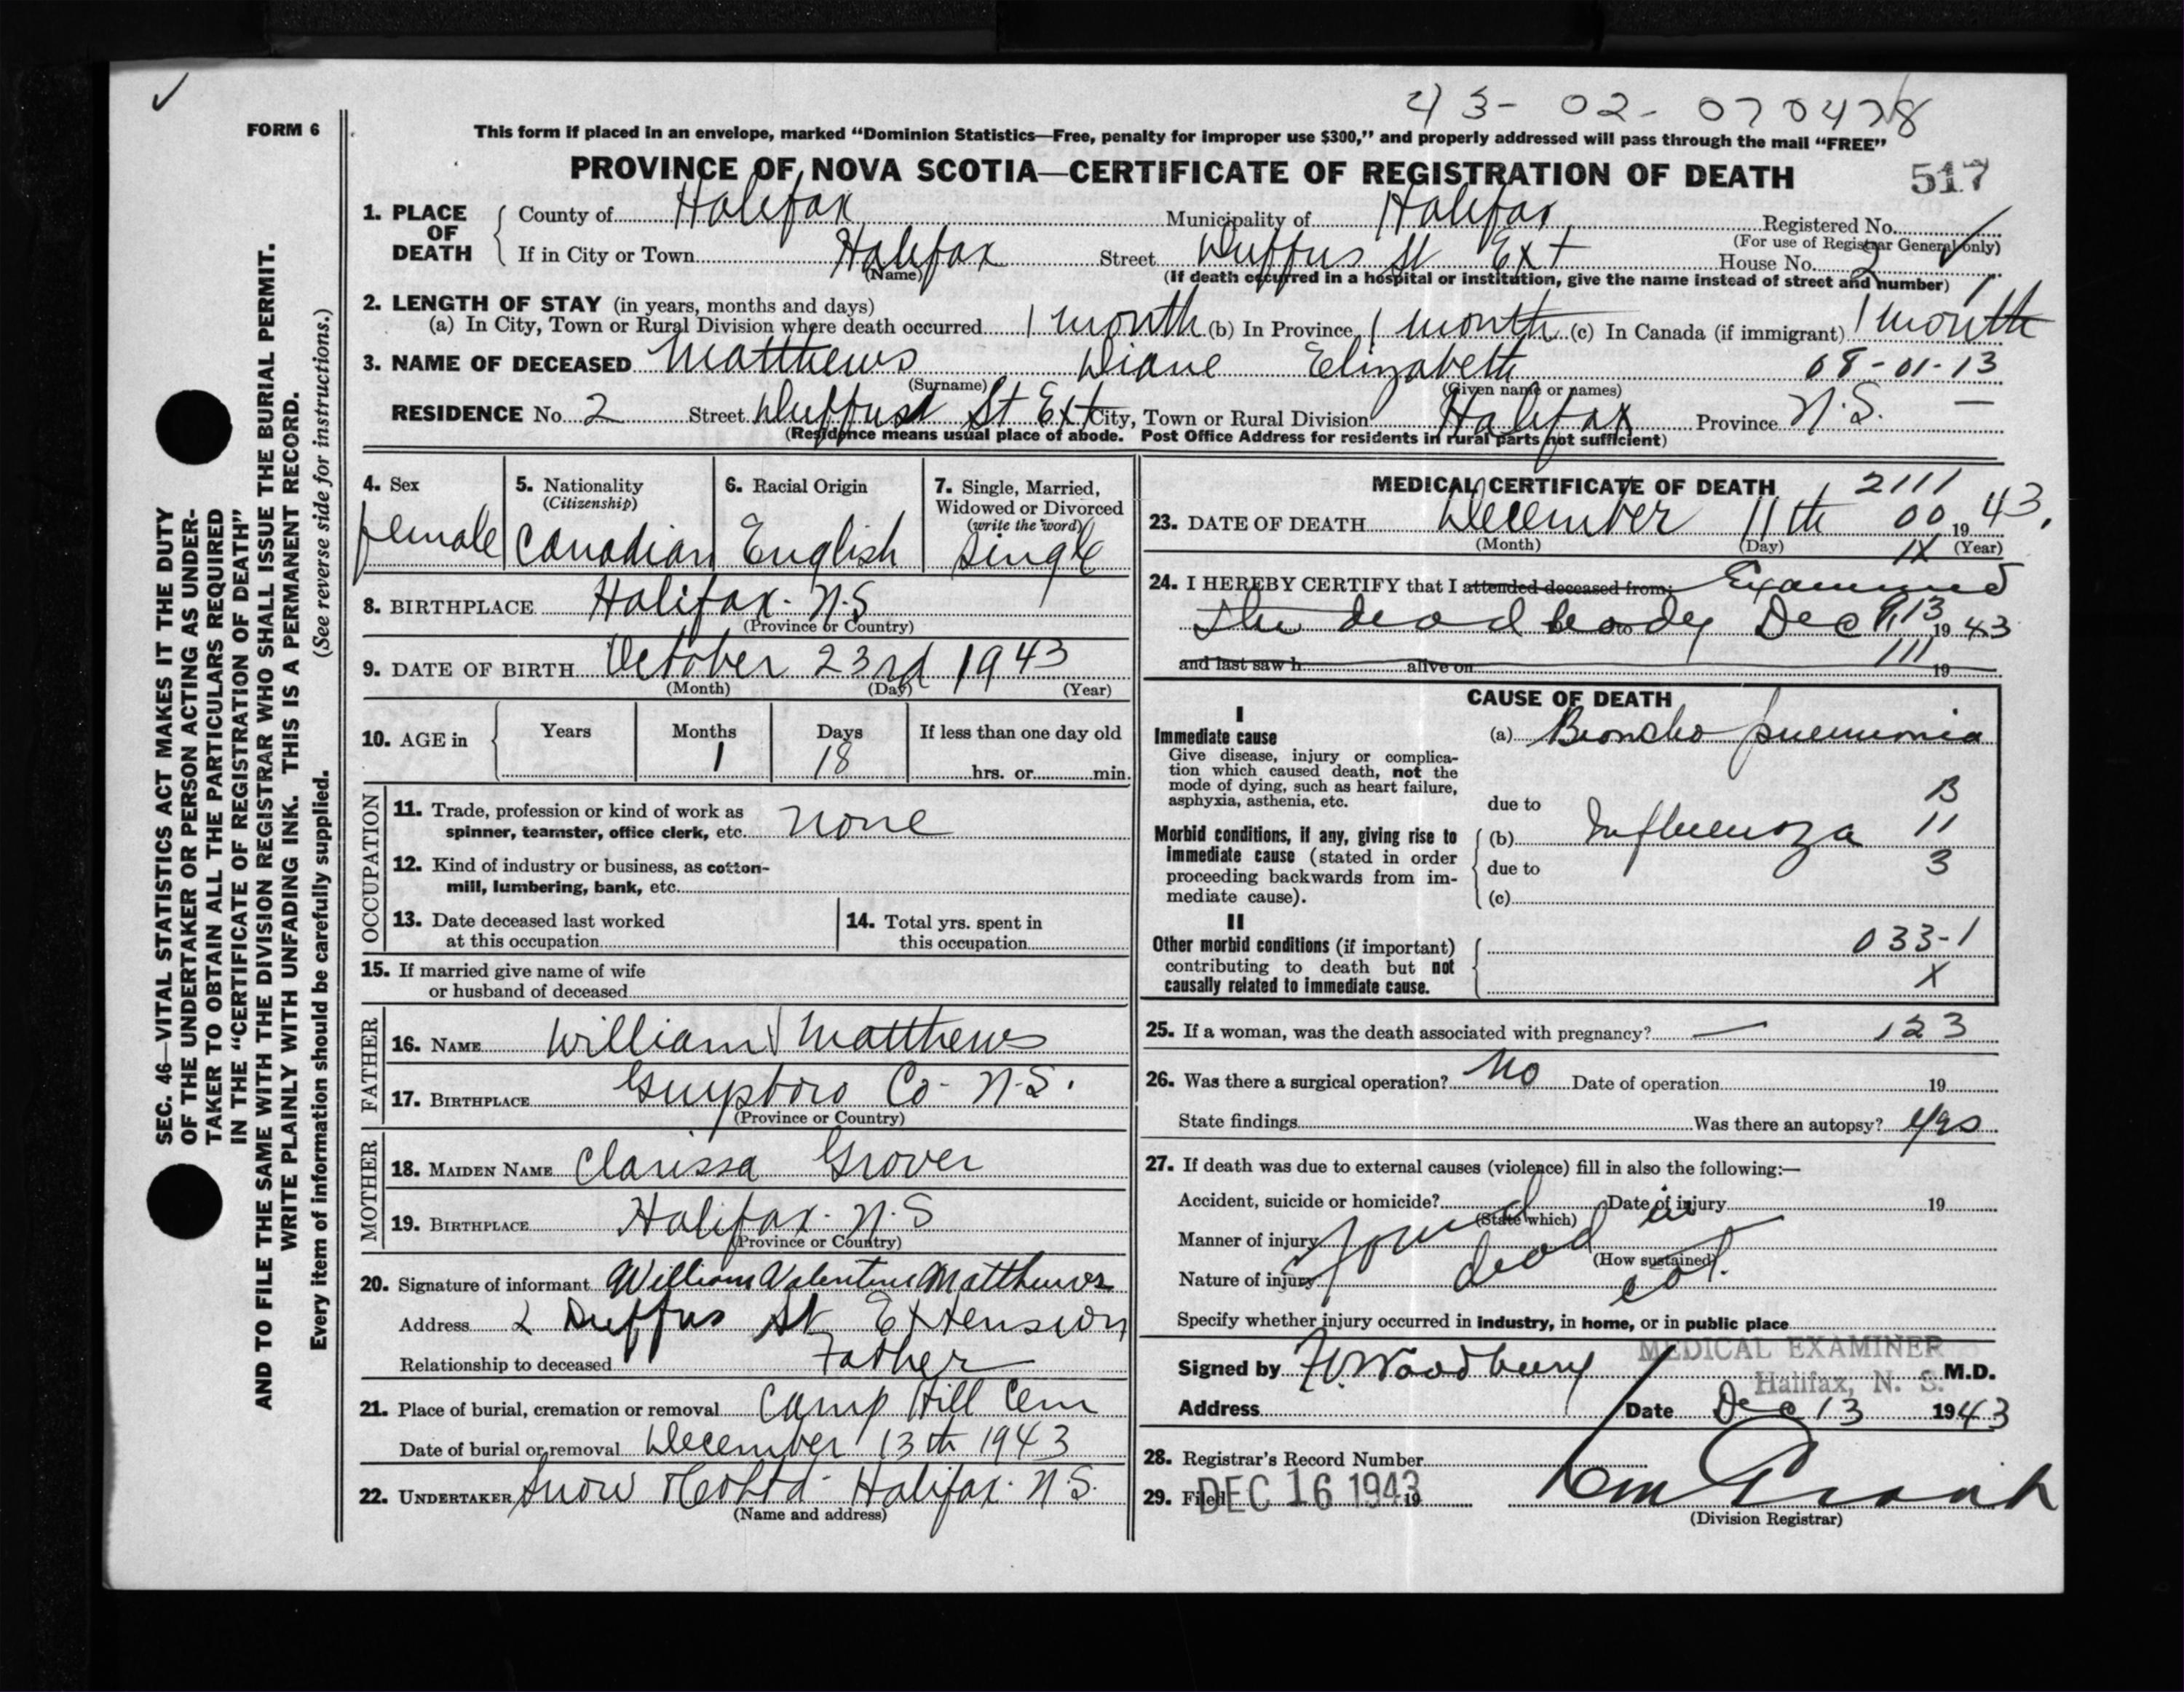 ✓
43-02-070478
FORM 6
This form if placed in an envelope, marked “Dominion Statistics—Free, penalty for improper use $300,” and properly addressed will pass through the mail “FREE”
PROVINCE OF NOVA SCOTIA—CERTIFICATE OF REGISTRATION OF DEATH 517
1. PLACE OF DEATH
County of Halifax Municipality of Halifax Registered No.
(For use of Registrar General only)
If in City or Town Halifax Street Duffus St Ext House No. 2
(Name) (If death occurred in a hospital or institution, give the name instead of street and number)
2. LENGTH OF STAY (in years, months and days)
(a) In City, Town or Rural Division where death occurred 1 month (b) In Province 1 month (c) In Canada (if immigrant) 1 month
3. NAME OF DECEASED Matthews Diane Elizabeth 08-01-13
(Surname) (Given name or names)
RESIDENCE No. 2 Street Duffus St Ext City, Town or Rural Division Halifax Province N.S. —
(Residence means usual place of abode. Post Office Address for residents in rural parts not sufficient)
4. Sex female
5. Nationality (Citizenship) Canadian
6. Racial Origin English
7. Single, Married, Widowed or Divorced (write the word) single
8. BIRTHPLACE Halifax. N.S
(Province or Country)
9. DATE OF BIRTH October 23rd 1943
(Month) (Day) (Year)
10. AGE in Years Months 1 Days 18 If less than one day old hrs. or min.
OCCUPATION
11. Trade, profession or kind of work as
spinner, teamster, office clerk, etc. none
12. Kind of industry or business, as cotton-
mill, lumbering, bank, etc.
13. Date deceased last worked
at this occupation
14. Total yrs. spent in
this occupation
15. If married give name of wife
or husband of deceased
FATHER
16. NAME William Matthews
17. BIRTHPLACE Guysboro Co- N.S.
(Province or Country)
MOTHER
18. MAIDEN NAME Clarissa Grover
19. BIRTHPLACE Halifax. N.S
(Province or Country)
20. Signature of informant William Valentine Matthews
Address 2 Duffus St Extension
Relationship to deceased Father
21. Place of burial, cremation or removal Camp Hill Cem
Date of burial or removal December 13th 1943
22. UNDERTAKER Snow & Co Ltd - Halifax. N.S.
(Name and address)
MEDICAL CERTIFICATE OF DEATH 2111
23. DATE OF DEATH December 11th 00 19 43.
(Month) (Day) (Year)
1X
24. I HEREBY CERTIFY that I attended deceased from: Examined
the dead body to Dec 13 19 43
and last saw h alive on 19
111
CAUSE OF DEATH
I
Immediate cause
Give disease, injury or complica-
tion which caused death, not the
mode of dying, such as heart failure,
asphyxia, asthenia, etc.
(a) Broncho pneumonia
due to
Morbid conditions, if any, giving rise to
immediate cause (stated in order
proceeding backwards from im-
mediate cause).
(b) Influenza
due to
(c)
B
11
3
II
Other morbid conditions (if important)
contributing to death but not
causally related to immediate cause.
033-1
X
25. If a woman, was the death associated with pregnancy? — 123
26. Was there a surgical operation? No Date of operation 19
State findings Was there an autopsy? yes
27. If death was due to external causes (violence) fill in also the following:—
Accident, suicide or homicide? Date of injury 19
(State which)
Manner of injury
(How sustained)
Nature of injury
found dead in cot.
Specify whether injury occurred in industry, in home, or in public place
MEDICAL EXAMINER
Halifax, N. S.
Signed by Woodbury M.D.
Address Date Dec 13 1943
28. Registrar's Record Number
29. Filed DEC 16 1943 19
(Division Registrar)
SEC. 46—VITAL STATISTICS ACT MAKES IT THE DUTY
OF THE UNDERTAKER OR PERSON ACTING AS UNDER-
TAKER TO OBTAIN ALL THE PARTICULARS REQUIRED
IN THE “CERTIFICATE OF REGISTRATION OF DEATH”
AND TO FILE THE SAME WITH THE DIVISION REGISTRAR WHO SHALL ISSUE THE BURIAL PERMIT.
WRITE PLAINLY WITH UNFADING INK. THIS IS A PERMANENT RECORD.
Every item of information should be carefully supplied. (See reverse side for instructions.)